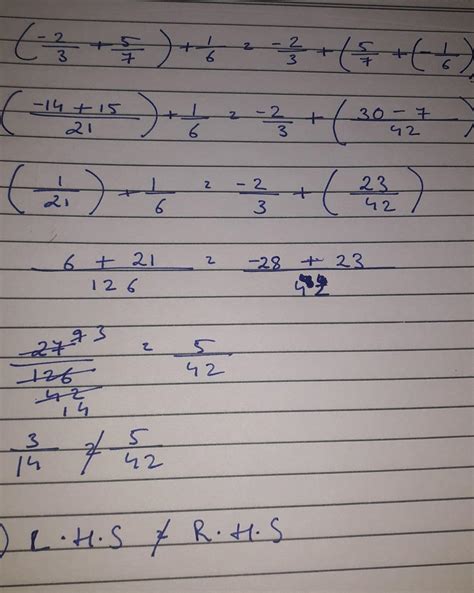 (-2/3 + 5/7) + 1/6 = -2/3 + (5/7 + (-1/6)
(-14 + 15/21) + 1/6 = -2/3 + (30 - 7/42)
(1/21) + 1/6 = -2/3 + (23/42)
6 + 21/126 = -28 + 23/42
27 9 3/126 42 14 = 5/42
3/14 ≠ 5/42
) L.H.S ≠ R.H.S